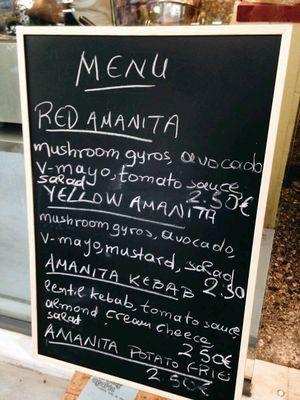 MENU
RED AMANITA
mushroom gyros, avocado
v-mayo, tomato sauce
salad 2.50€
YELLOW AMANITA
mushroom gyros, avocado,
v-mayo, mustard, salad
2.50
AMANITA KEBAB
Lentil kebab, tomato sauce,
almond cream cheece
salad 2.50€
AMANITA POTATO FRIES
2.50€